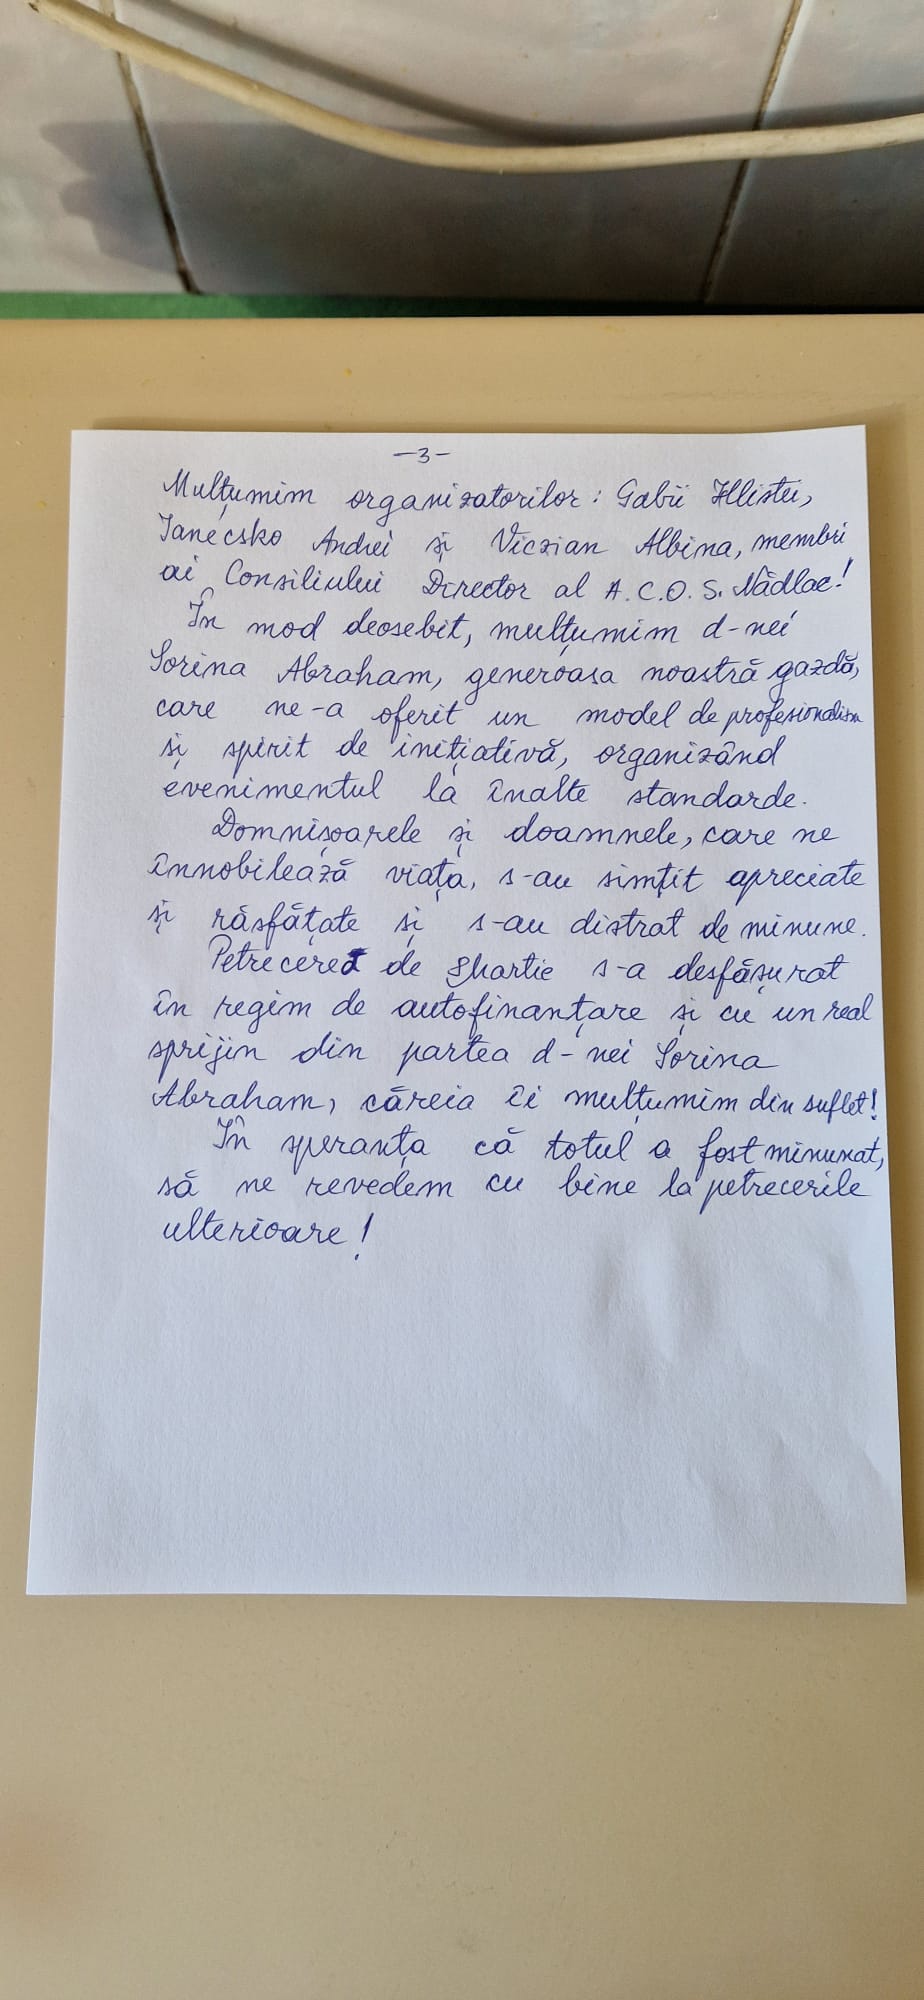 -3-
Mulțumim organizatorilor: Gabii Hlistei,
Ianécsko Andrei și Viczian Albina, membri
ai Consiliului Director al A.C.O.S. Nădlac!
În mod deosebit, mulțumim d-nei
Sorina Abraham, generoasa noastră gazdă,
care ne-a oferit un model de profesionalism
și spirit de inițiativă, organizând
evenimentul la înalte standarde.
Domnișoarele și doamnele, care ne
înnobilează viața, s-au simțit apreciate
și răsfățate și s-au distrat de minune.
Petrecerea de 8 Martie s-a desfășurat
în regim de autofinanțare și cu un real
sprijin din partea d-nei Sorina
Abraham, căreia îi mulțumim din suflet!
În speranța că totul a fost minunat,
să ne revedem cu bine la petrecerile
ulterioare!